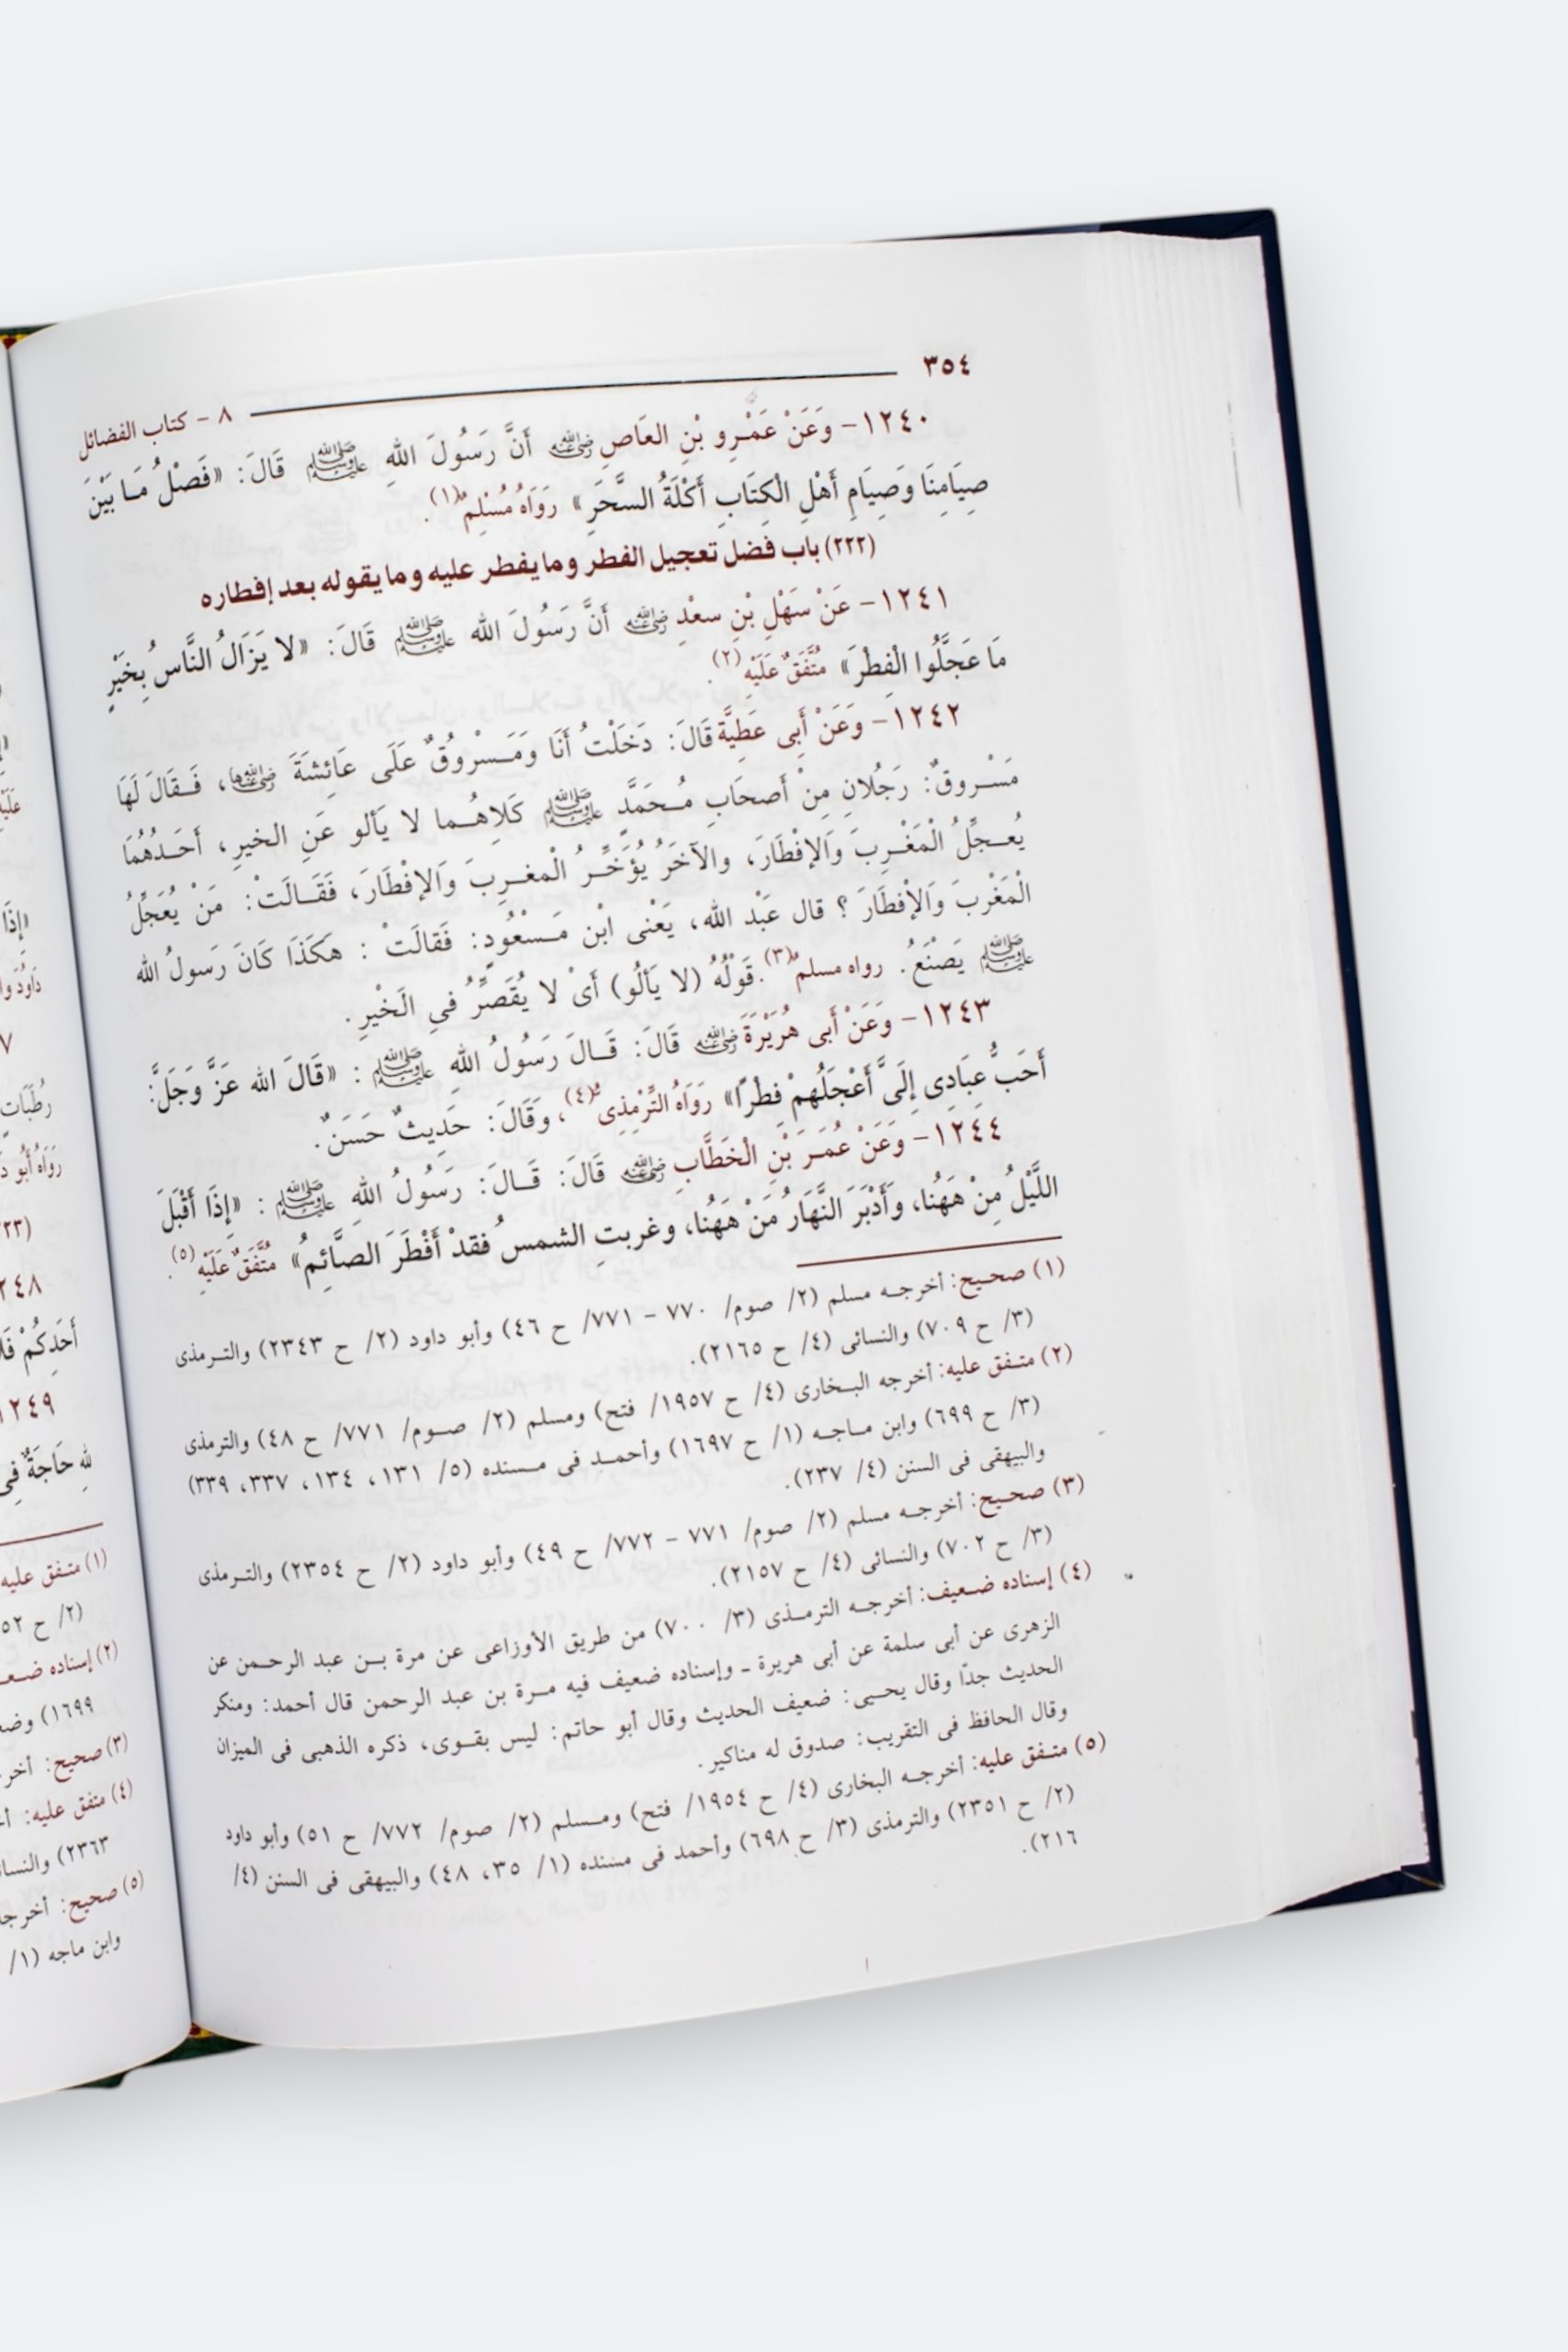 ٣٥٤
٨ - كتاب الفضائل
١٢٤٠- وَعَنْ عَمْرِو بْنِ العَاصِ رضي الله عنه أَنَّ رَسُولَ اللهِ ﷺ قَالَ: «فَصْلُ مَا بَيْنَ
صِيَامِنَا وَصِيَامِ أَهْلِ الْكِتَابِ أَكْلَةُ السَّحَرِ» رَوَاهُ مُسْلِمٌ(١).
(٢٢٢) باب فضل تعجيل الفطر وما يفطر عليه وما يقوله بعد إفطاره
١٢٤١- عَنْ سَهْلِ بْنِ سعْدٍ رضي الله عنه أَنَّ رَسُولَ الله ﷺ قَالَ: «لا يَزَالُ النَّاسُ بِخَيْرٍ
مَا عَجَّلُوا الْفِطْرَ» مُتَّفَقٌ عَلَيْهِ(٢).
١٢٤٢- وَعَنْ أَبِى عَطِيَّةَ قَالَ: دَخَلْتُ أَنَا وَمَسْرُوقٌ عَلَى عَائِشَةَ رضي الله عنها، فَقَالَ لَهَا
مَسْروقٌ: رَجُلانِ مِنْ أَصحَابِ مُحَمَّدٍ ﷺ كَلاهُما لا يَألو عَنِ الخيرِ، أَحَدُهُمَا
يُعجِّلُ الْمَغْرِبَ وَالإفْطَارَ، والآخَرُ يُؤَخِّرُ الْمغرِبَ وَالإفْطَارَ، فَقَالَتْ: مَنْ يُعَجِّلُ
الْمَغْرِبَ وَالإفْطَارَ ؟ قال عَبْد الله، يَعْنى ابْن مَسْعُودٍ: فَقالَتْ : هَكَذَا كَانَ رَسولُ الله
ﷺ يَصْنَعُ. رواه مسلمٌ(٣). قَوْلُهُ (لا يَألُو) أَىْ لا يُقَصِّرُ فىِ الَخْيرِ .
١٢٤٣- وَعَنْ أَبى هُرَيْرَةَ رضي الله عنه قَالَ: قَالَ رَسُولُ اللهِ ﷺ : «قَالَ الله عَزَّ وَجَلَّ:
أَحَبُّ عِبَادِى إِلَىَّ أَعْجَلُهُمْ فِطْرًا» رَوَاهُ التِّرْمِذِىُّ(٤)، وَقَالَ: حَدِيثٌ حَسَنٌ.
١٢٤٤- وَعَنْ عُمَرَ بْنِ الْخَطَّابِ رضي الله عنه قَالَ: قَالَ: رَسُولُ اللهِ ﷺ : «إِذَا أَقْبَلَ
اللَّيْلُ مِنْ هَهُنا، وَأَدْبَرَ النَّهَارُ مَنْ هَهُنا، وغربتِ الشمسُ فقدْ أَفْطَرَ الصَّائِمُ» مُتَّفَقٌ عَلَيْهِ(٥).
(١) صحيح: أخرجه مسلم (٢/ صوم/ ٧٧٠ - ٧٧١/ ح ٤٦) وأبو داود (٢/ ح ٢٣٤٣) والترمذى
(٣/ ح ٧٠٩) والنسائى (٤/ ح ٢١٦٥).
(٢) متفق عليه: أخرجه البخارى (٤/ ح ١٩٥٧/ فتح) ومسلم (٢/ صوم/ ٧٧١/ ح ٤٨) والترمذى
(٣/ ح ٦٩٩) وابن ماجه (١/ ح ١٦٩٧) وأحمد فى مسنده (٥/ ١٣١، ١٣٤، ٣٣٧، ٣٣٩)
والبيهقى فى السنن (٤/ ٢٣٧).
(٣) صحيح: أخرجه مسلم (٢/ صوم/ ٧٧١ - ٧٧٢/ ح ٤٩) وأبو داود (٢/ ح ٢٣٥٤) والترمذى
(٣/ ح ٧٠٢) والنسائى (٤/ ح ٢١٥٧).
(٤) إسناده ضعيف: أخرجه الترمذى (٣/ ٧٠٠) من طريق الأوزاعى عن مرة بن عبد الرحمن عن
الزهرى عن أبى سلمة عن أبى هريرة - وإسناده ضعيف فيه مرة بن عبد الرحمن قال أحمد: ومنكر
الحديث جدًا وقال يحيى: ضعيف الحديث وقال أبو حاتم: ليس بقوى، ذكره الذهبى فى الميزان
وقال الحافظ فى التقريب: صدوق له مناكير.
(٥) متفق عليه: أخرجه البخارى (٤/ ح ١٩٥٤/ فتح) ومسلم (٢/ صوم/ ٧٧٢/ ح ٥١) وأبو داود
(٢/ ح ٢٣٥١) والترمذى (٣/ ح ٦٩٨) وأحمد فى مسنده (١/ ٣٥، ٤٨) والبيهقى فى السنن (٤/
٢١٦).
«إِذَا
أَحَدِكُمْ
١٢٤٩
لله حَاجَةٌ فِى
(١) متفق عليه
(٢/ ح
(٢) إسناده
١٦٩٩)
(٣) صحيح:
(٤) متفق عليه:
٢٣٦٣)
(٥) صحيح:
وابن ماجه (١/